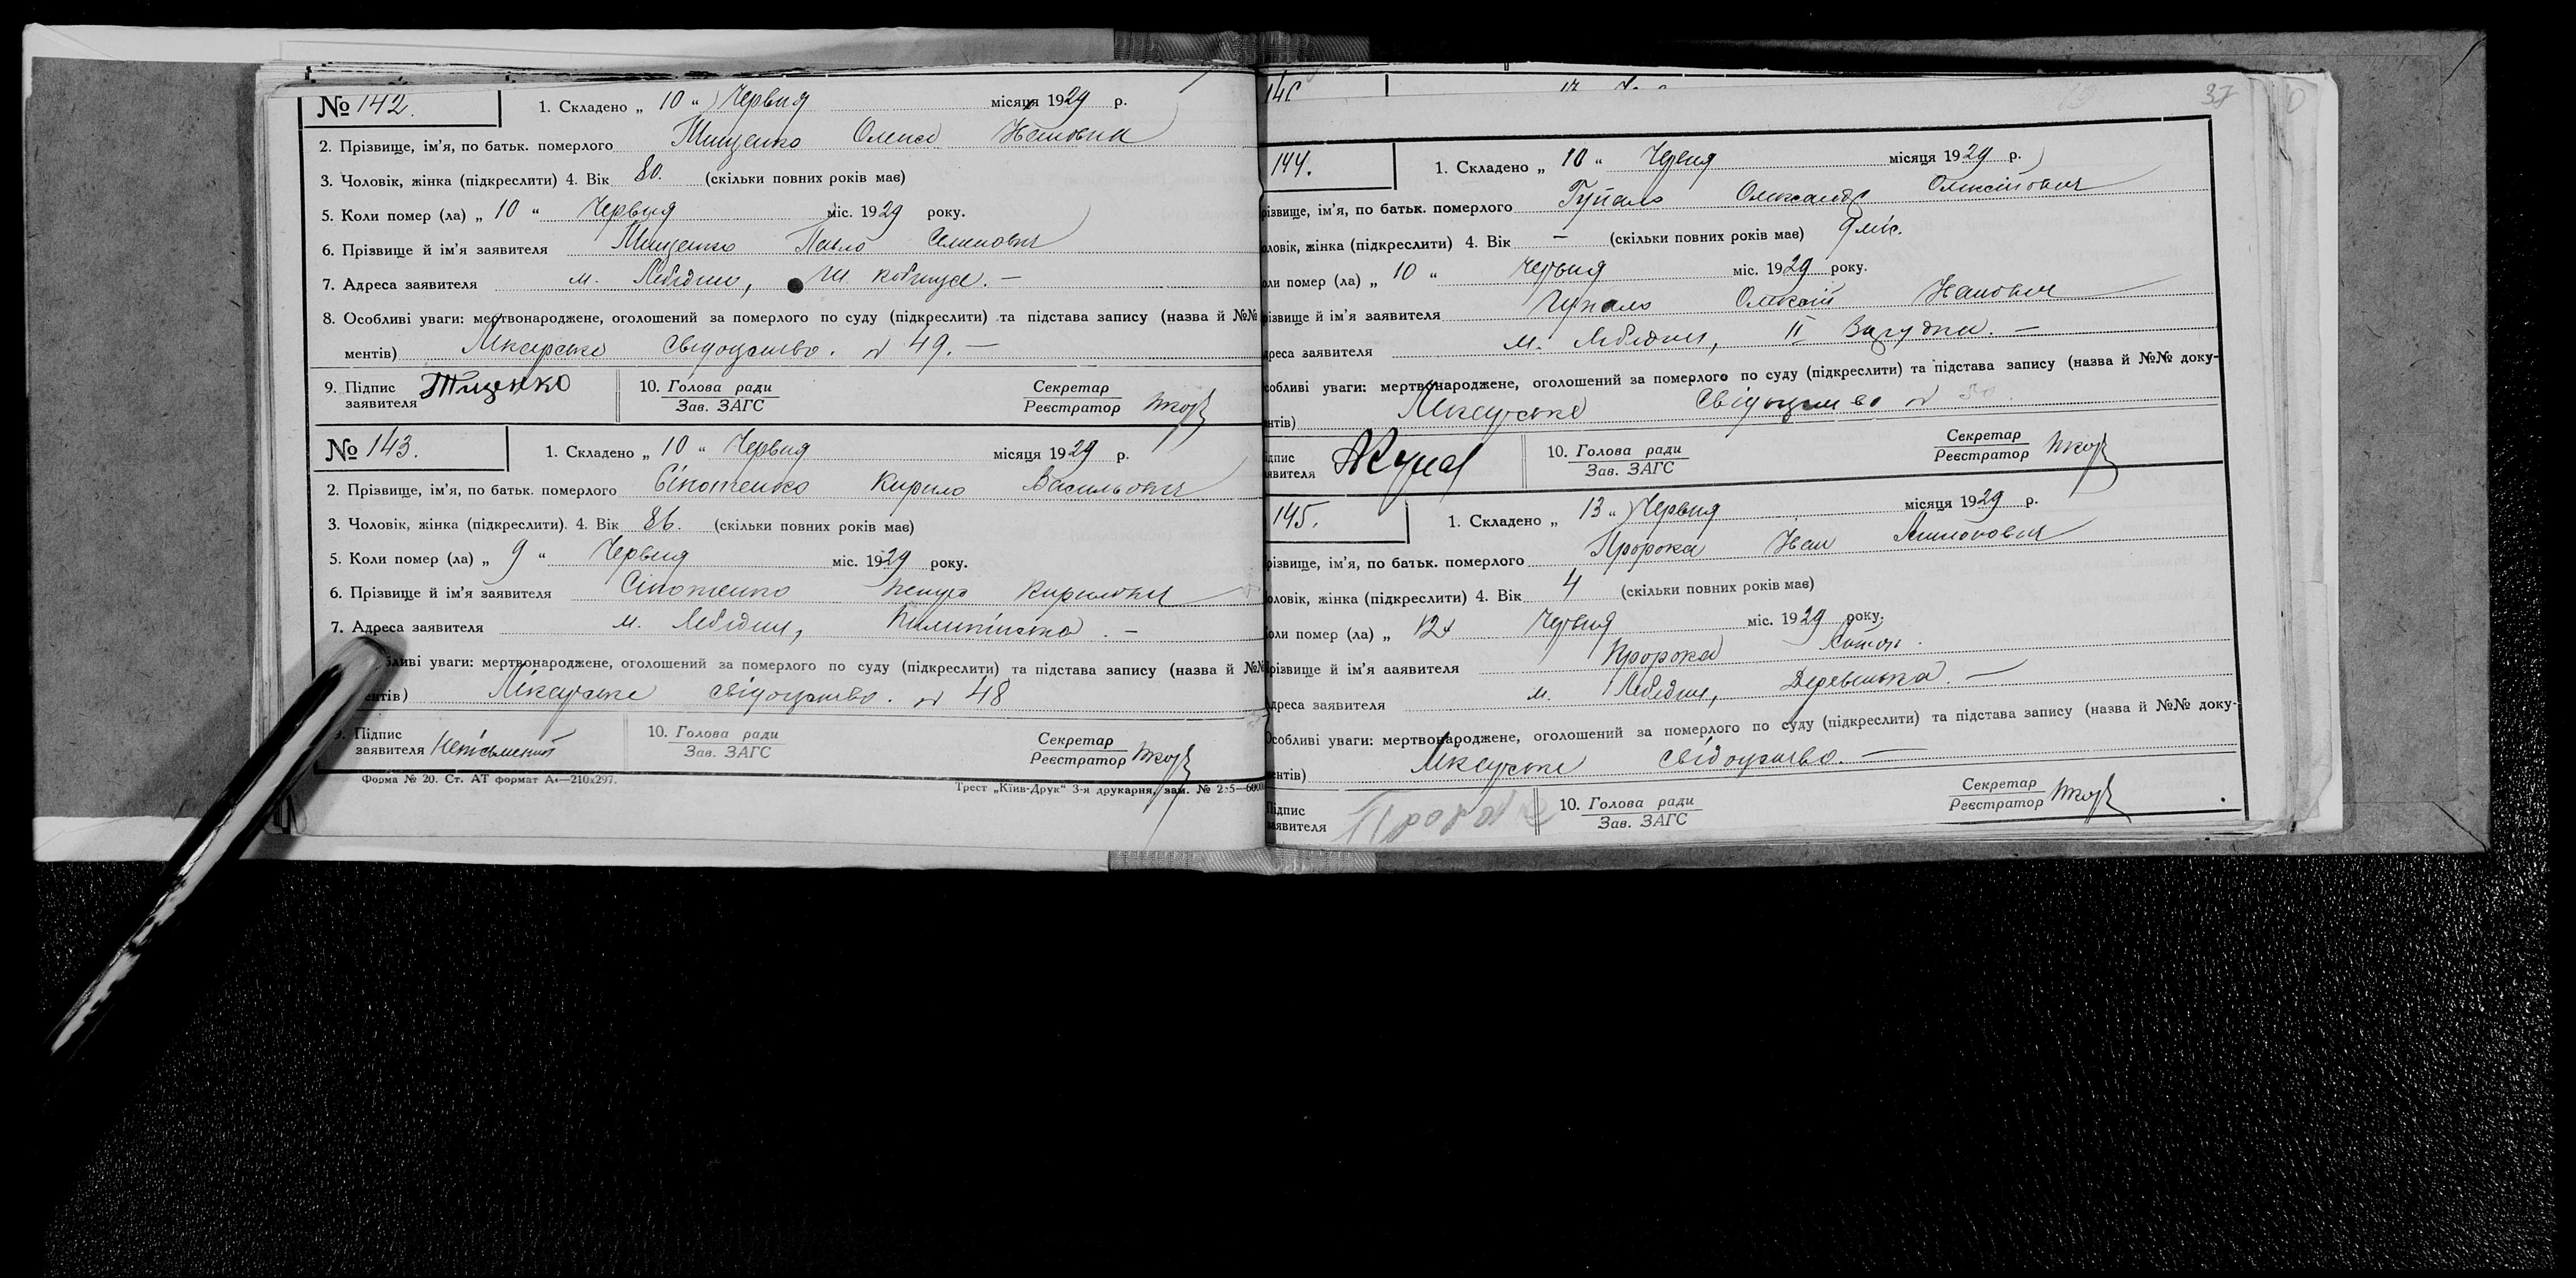 № 142. 1. Складено „ 10 “ Червня місяця 1929 р.
2. Прізвище, ім’я, по батьк. померлого Тищенко Олекса
3. Чоловік, жінка (підкреслити) 4. Вік 80. (скільки повних років має)
5. Коли помер (ла) „ 10 “ Червня міс. 1929 року.
6. Прізвище й ім’я заявителя Тищенко Павло Семенович
7. Адреса заявителя м. Лебедин,
8. Особливі уваги: мертвонароджене, оголошений за померлого по суду (підкреслити) та підстава запису (назва й №№
ментів) Лікарське свідоцтво. № 49. —
9. Підпис заявителя Тищенко 10. Голова ради Зав. ЗАГС Секретар Реєстратор
№ 143. 1. Складено „ 10 “ Червня місяця 1929 р.
2. Прізвище, ім’я, по батьк. померлого Кирило Васильович
3. Чоловік, жінка (підкреслити). 4. Вік 86. (скільки повних років має)
5. Коли помер (ла) „ 9 “ Червня міс. 1929 року.
6. Прізвище й ім’я заявителя Кирилович
7. Адреса заявителя м. Лебедин,
бливі уваги: мертвонароджене, оголошений за померлого по суду (підкреслити) та підстава запису (назва й №№
ентів) Лікарське свідоцтво. № 48
9. Підпис заявителя Неписьменний 10. Голова ради Зав. ЗАГС Секретар Реєстратор
Форма № 20. Ст. АТ формат А4—210х297.
Трест „Київ-Друк“ 3-я друкарня, зам. №
37
144. 1. Складено „ 10 “ Червня місяця 1929 р.
різвище, ім’я, по батьк. померлого Гупало Олександр Олексійович
оловік, жінка (підкреслити) 4. Вік — (скільки повних років має) 9 міс.
оли помер (ла) „ 10 “ Червня міс. 1929 року.
різвище й ім’я заявителя Гупало Олексій Іванович
дреса заявителя м. Лебедин, II
собливі уваги: мертвонароджене, оголошений за померлого по суду (підкреслити) та підстава запису (назва й №№ доку-
нтів) Лікарське свідоцтво № 50
ідпис аявителя 10. Голова ради Зав. ЗАГС Секретар Реєстратор
145. 1. Складено „ 13 “ Червня місяця 1929 р.
різвище, ім’я, по батьк. померлого Пророка Іван Антонович
оловік, жінка (підкреслити) 4. Вік 4 (скільки повних років має)
оли помер (ла) „ 12 Червня міс. 1929 року.
різвище й ім’я ааявителя Пророка Антон.
дреса заявителя м. Лебедин, Деревенька. —
Особливі уваги: мертвонароджене, оголошений за померлого по суду (підкреслити) та підстава запису (назва й №№ доку-
ентів) Лікарське свідоцтво. —
Підпис заявителя Пророка 10. Голова ради Зав. ЗАГС Секретар Реєстратор